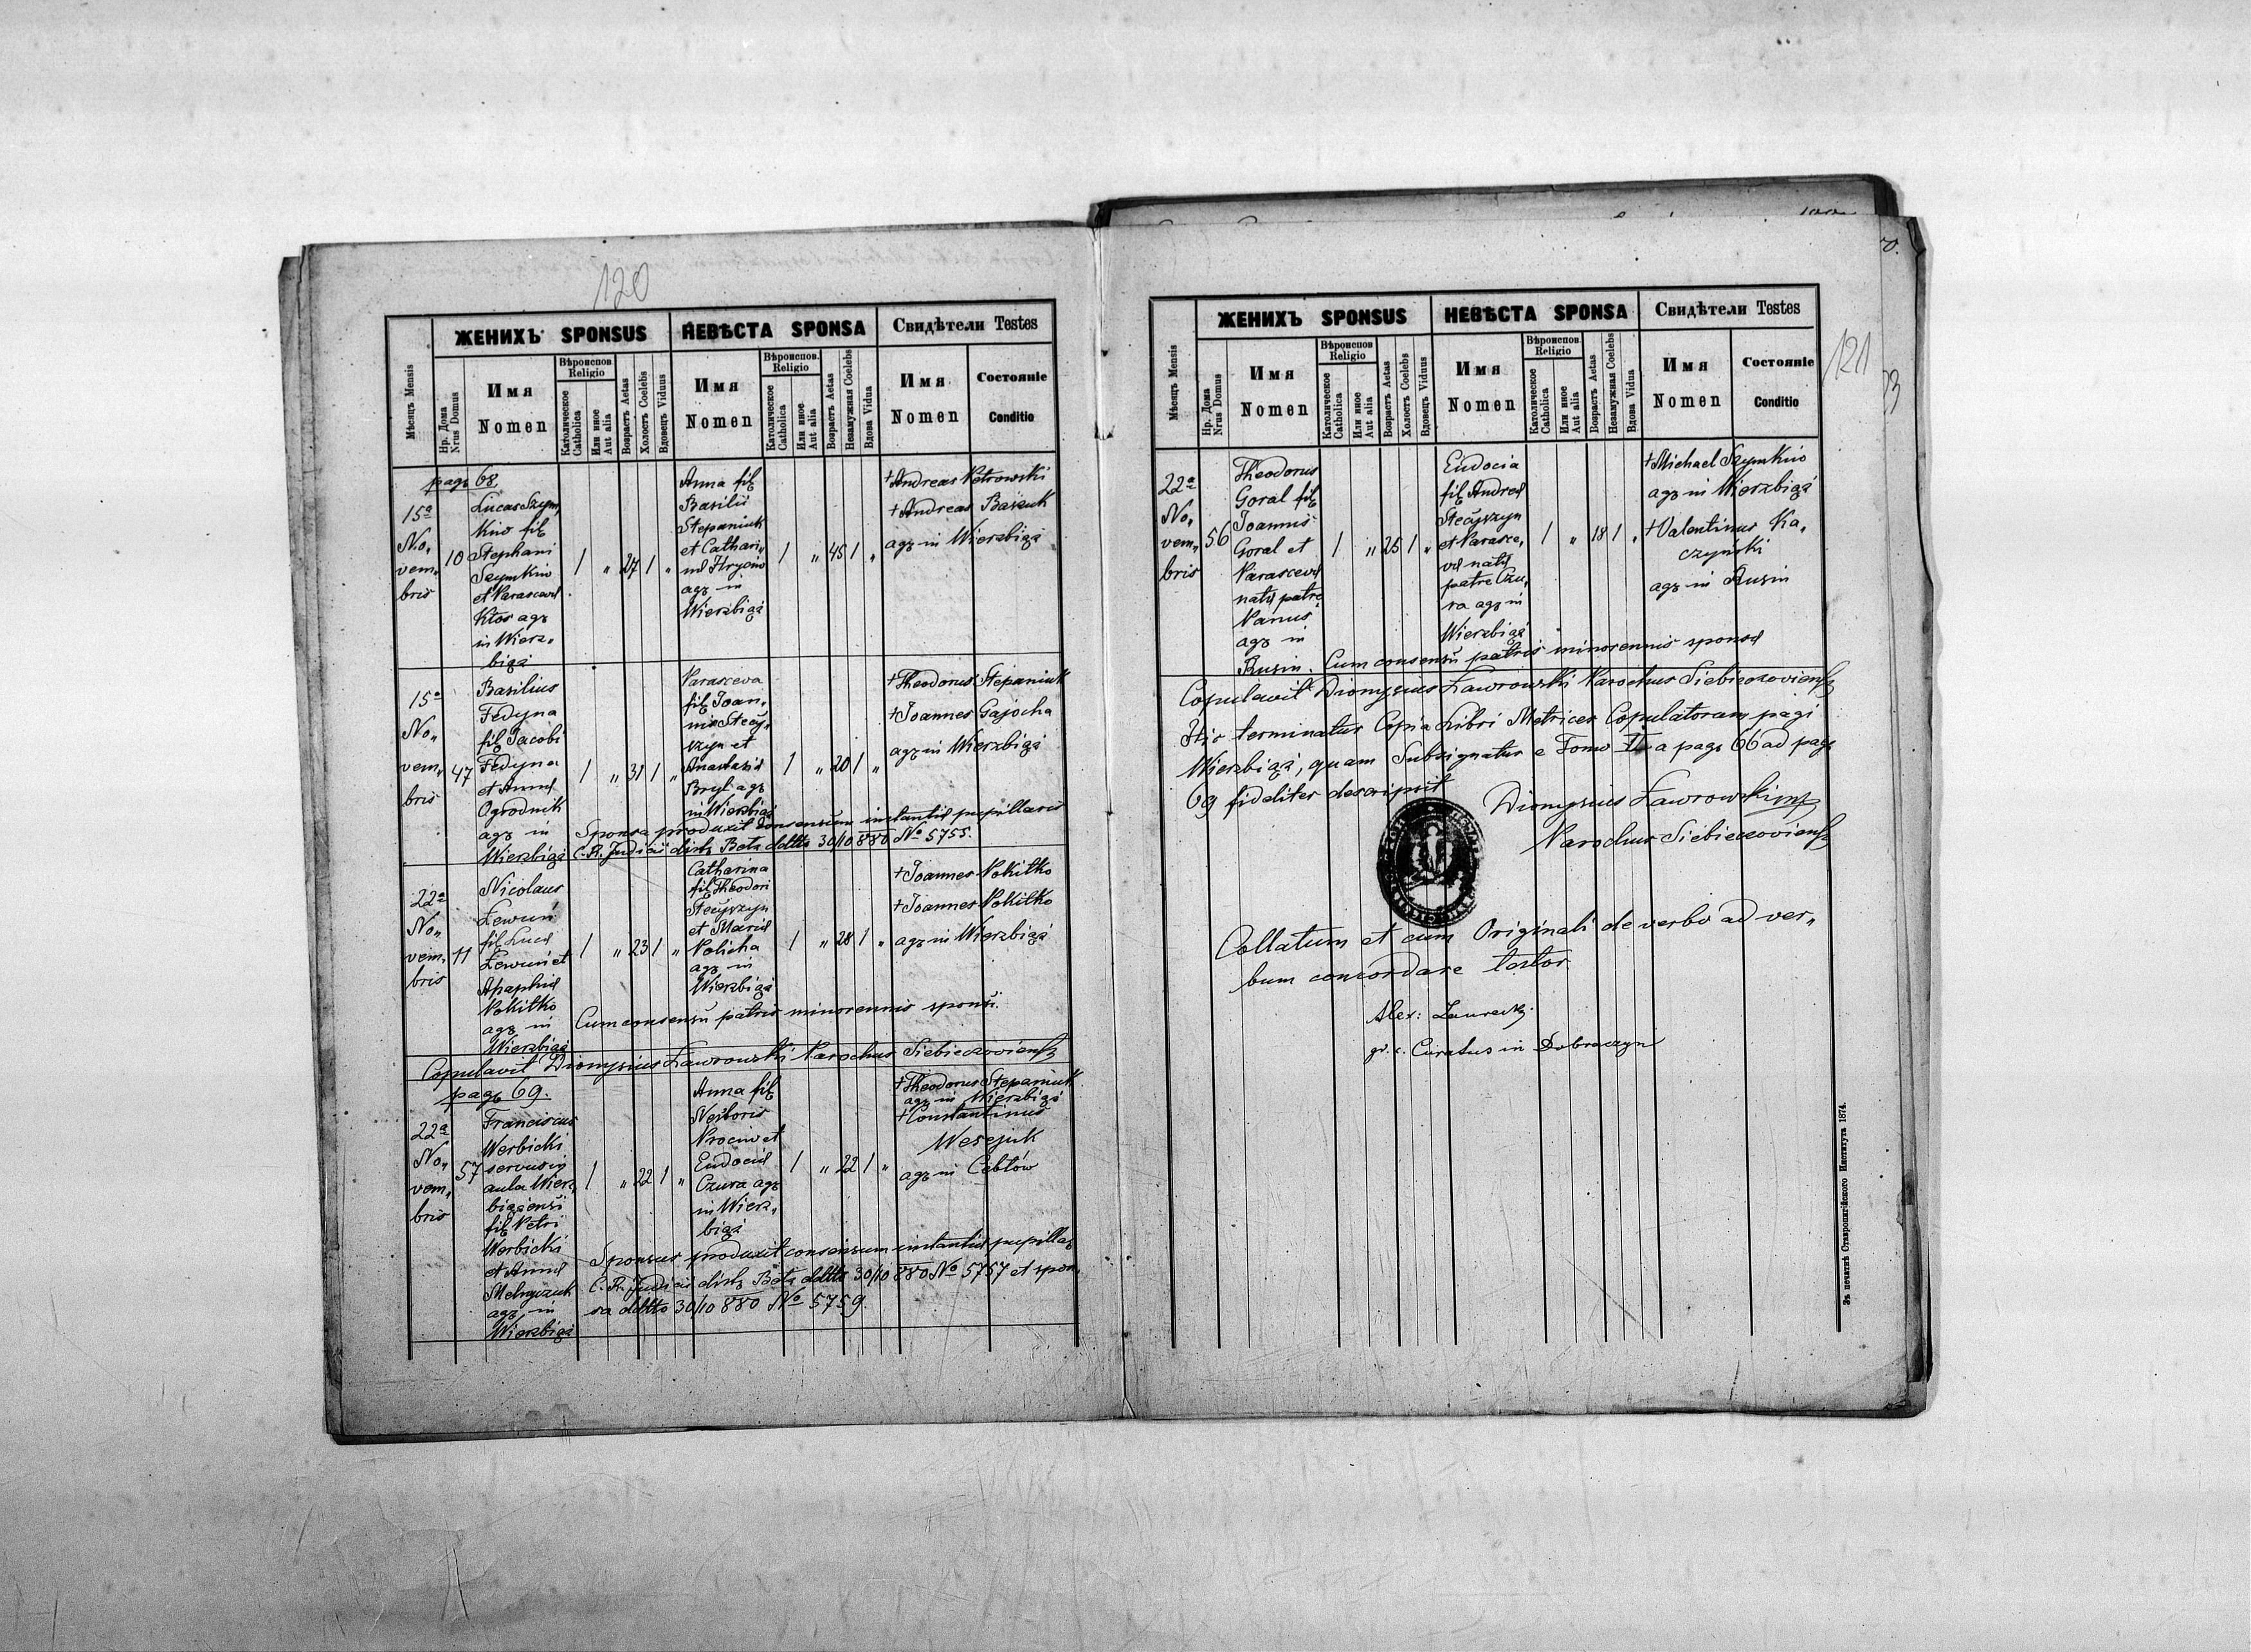 120
ЖЕНИХЪ SPONSUS
НЕВѢСТА SPONSA
Свидѣтели Testes
Мѣсяцъ Mensis
Нр. Дома Nrus Domus
Имя Nomen
Вѣроиспов. Religio
Католическое Catholica
Или иное Aut alia
Возрастъ Aetas
Холостъ Coelebs
Вдовецъ Viduus
Имя Nomen
Вѣроиспов. Religio
Католическое Catholica
Или иное Aut alia
Возрастъ Aetas
Незамужная Coelebs
Вдова Vidua
Имя Nomen
Состояніе Conditio
pag 68
15a
No„
vem„
bris
10
Lucas Szym„
kiw fil
Stephani
Szymkiw
et Parascevæ
Ktos agr
in Wierz„
biąż
1 „ 27 1 „
Anna fil
Basilii
Stepaniuk
et Cathari„
næ Hryciw
agr in
Wierzbiąż
1 „ 45 1 „
+Andreas Petrowski
+Andreas Baszuk
agr in Wierzbiąż
15a
No„
vem„
bris
47
Basilius
Fedyna
fil Jacobi
Fedyna
et Annæ
Ogrodnik
agr in
Wierzbiąż
1 „ 31 1 „
Parasceva
fil Joan„
nis Stecy„
szyn et
Anastasiæ
Bryl agr
in Wierzbiąż
1 „ 20 1 „
+Theodorus Stepaniuk
+Joannes Gajocha
agr in Wierzbiąż
Sponsa produxit consensum instantiæ pupillaris
C. R. Judicii distr Bełz ddtto 30/10 880 No 5755.
22a
No„
vem„
bris
11
Nicolaus
Lewuń
fil Lucæ
Lewuń et
Ahaphiæ
Pokitko
agr in
Wierzbiąż
1 „ 23 1 „
Catharina
fil Theodori
Stecyszyn
et Mariæ
Policha
agr in
Wierzbiąż
1 „ 28 1 „
+Joannes Pokitko
+Joannes Pokitko
agr in Wierzbiąż
Cum consensu patris minorennis sponsi.
Copulavit Dionysius Ławrowski Parochus Siebieczoviens
pag 69.
22a
No„
vem„
bris
57
Franciscus
Werbicki
servus in
aula Wierz„
biążensi
fil Petri
Werbicki
et Annæ
Melnyczuk
agr in
Wierzbiąż
1 „ 22 1 „
Anna fil
Nestoris
Prociw et
Eudociæ
Czura agr
in Wierz„
biąż
1 „ 22 1 „
+Theodorus Stepaniuk
agr in Wierzbiąż
+Constantinus
Wesejuk
agr in Cebłów
Sponsus produxit consensum instantiæ pupillar
C. R. Judicii distr Bełz ddtto 30/10 880 No 5757 et spon„
sa ddtto 30/10 880 No 5759.
121
ЖЕНИХЪ SPONSUS
НЕВѢСТА SPONSA
Свидѣтели Testes
Мѣсяцъ Mensis
Нр. Дома Nrus Domus
Имя Nomen
Вѣроиспов. Religio
Католическое Catholica
Или иное Aut alia
Возрастъ Aetas
Холостъ Coelebs
Вдовецъ Viduus
Имя Nomen
Вѣроиспов. Religio
Католическое Catholica
Или иное Aut alia
Возрастъ Aetas
Незамужная Coelebs
Вдова Vidua
Имя Nomen
Состояніе Conditio
22a
No„
vem„
bris
56
Theodorus
Goral fil
Joannis
Goral et
Parascevæ
natæ patre
Panus
agr in
Rusin.
1 „ 25 1 „
Eudocia
fil Andreæ
Stecyszyn
et Parasce„
væ natæ
patre Czu„
ra agr in
Wierzbiąż
1 „ 18 1 „
+Michael Szymkiw
agr in Wierzbiąż
+Valentinus Ka„
czyński
agr in Rusin
Cum consensu patris minorennis sponsæ
Copulavit Dionysius Ławrowski Parochus Siebieczoviens
Hic terminatur Copia Libri Metrices Copulatorum pagi
Wierzbiąż, quam Subsignatus e Tomo II a pag 66 ad pag
69 fideliter descripsit
Dionysius Ławrowski mp
Parochus Siebieczoviens
Collatum et cum Originali de verbo ad ver„
bum concordare testor
Alex:
gr. c. Curatus in Dobraczyn
Зъ печатнѣ Ставропигійского Института 1874.